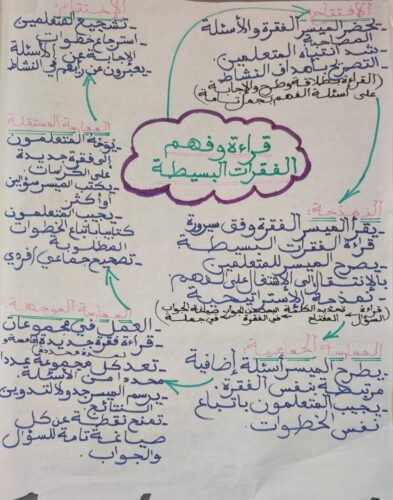 قراءة وفهم
الفقرات البسيطة
الافتتاح:
- يحضر الميسر الفقرة والأسئلة
المصاحبة
- شد انتباه المتعلمين
- التصريح بأهداف النشاط
(القراءة بطلاقة وطن والإجابة
على أسئلة الفهم بجمل تامة)
النمذجة:
- يقرأ الميسر الفقرة وفق سيرورة
قراءة الفقرات البسيطة
- يصرح الميسر للمتعلمين
بالانتقال إلى الاشتغال على الفهم.
- نمذجة الاستراتيجية
(قراءة السؤال
تحديد الكلمة المفتاح
في الفقرة
صياغة الجواب في جملة)
الممارسة الجماعية:
- يطرح الميسر أسئلة إضافية
مرتبطة بنفس الفقرة.
- يجيب المتعلمون باتباع
نفس الخطوات.
الممارسة الموجهة
- العمل في مجموعات
- قراءة فقرة جديدة
- تعد كل مجموعة عددا
محددا من الأسئلة.
- يرسم الميسر جدولا لتدوين
النتائج.
- تمنح نقطة عن كل
صياغة تامة للسؤال
والجواب.
الممارسة المستقلة
- يوجه المتعلمون
إلى فقرة جديدة
على الكراسات
- يكتب الميسر سؤالين
أو أكثر
- يجيب المتعلمون
كتابيا باتباع الخطوات
المطلوبة
- تصحيح جماعي / فردي
الاختتام:
- تشجيع المتعلمين
- استرجاع خطوات
الإجابة عن الأسئلة
- يعبرون عن رأيهم في النشاط